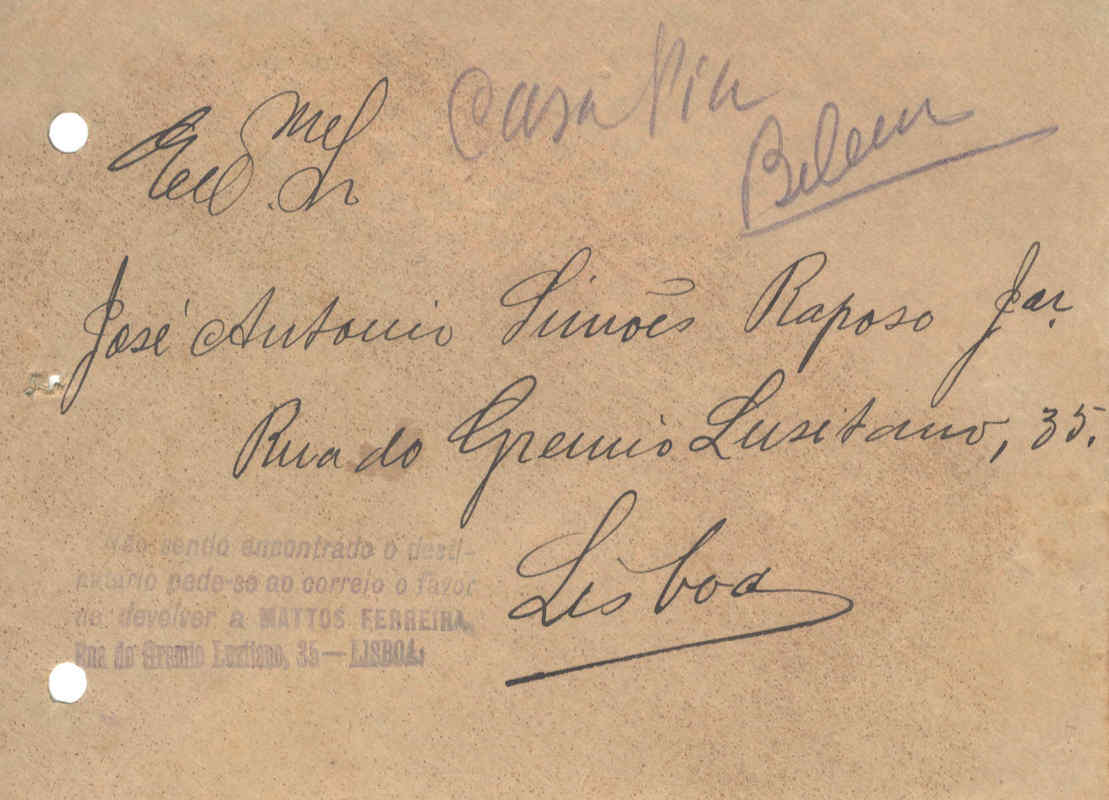 Casa Pia
Belem
Exmo. Sr.
José Antonio Simões Raposo Jor.
Rua do Gremio Lusitano, 35.
Lisboa
Não sendo encontrado o desti-
natario pede-se ao correio o favor
de devolver a MATTOS FERREIRA,
Rua do Gremio Luzitano, 35—LISBOA.